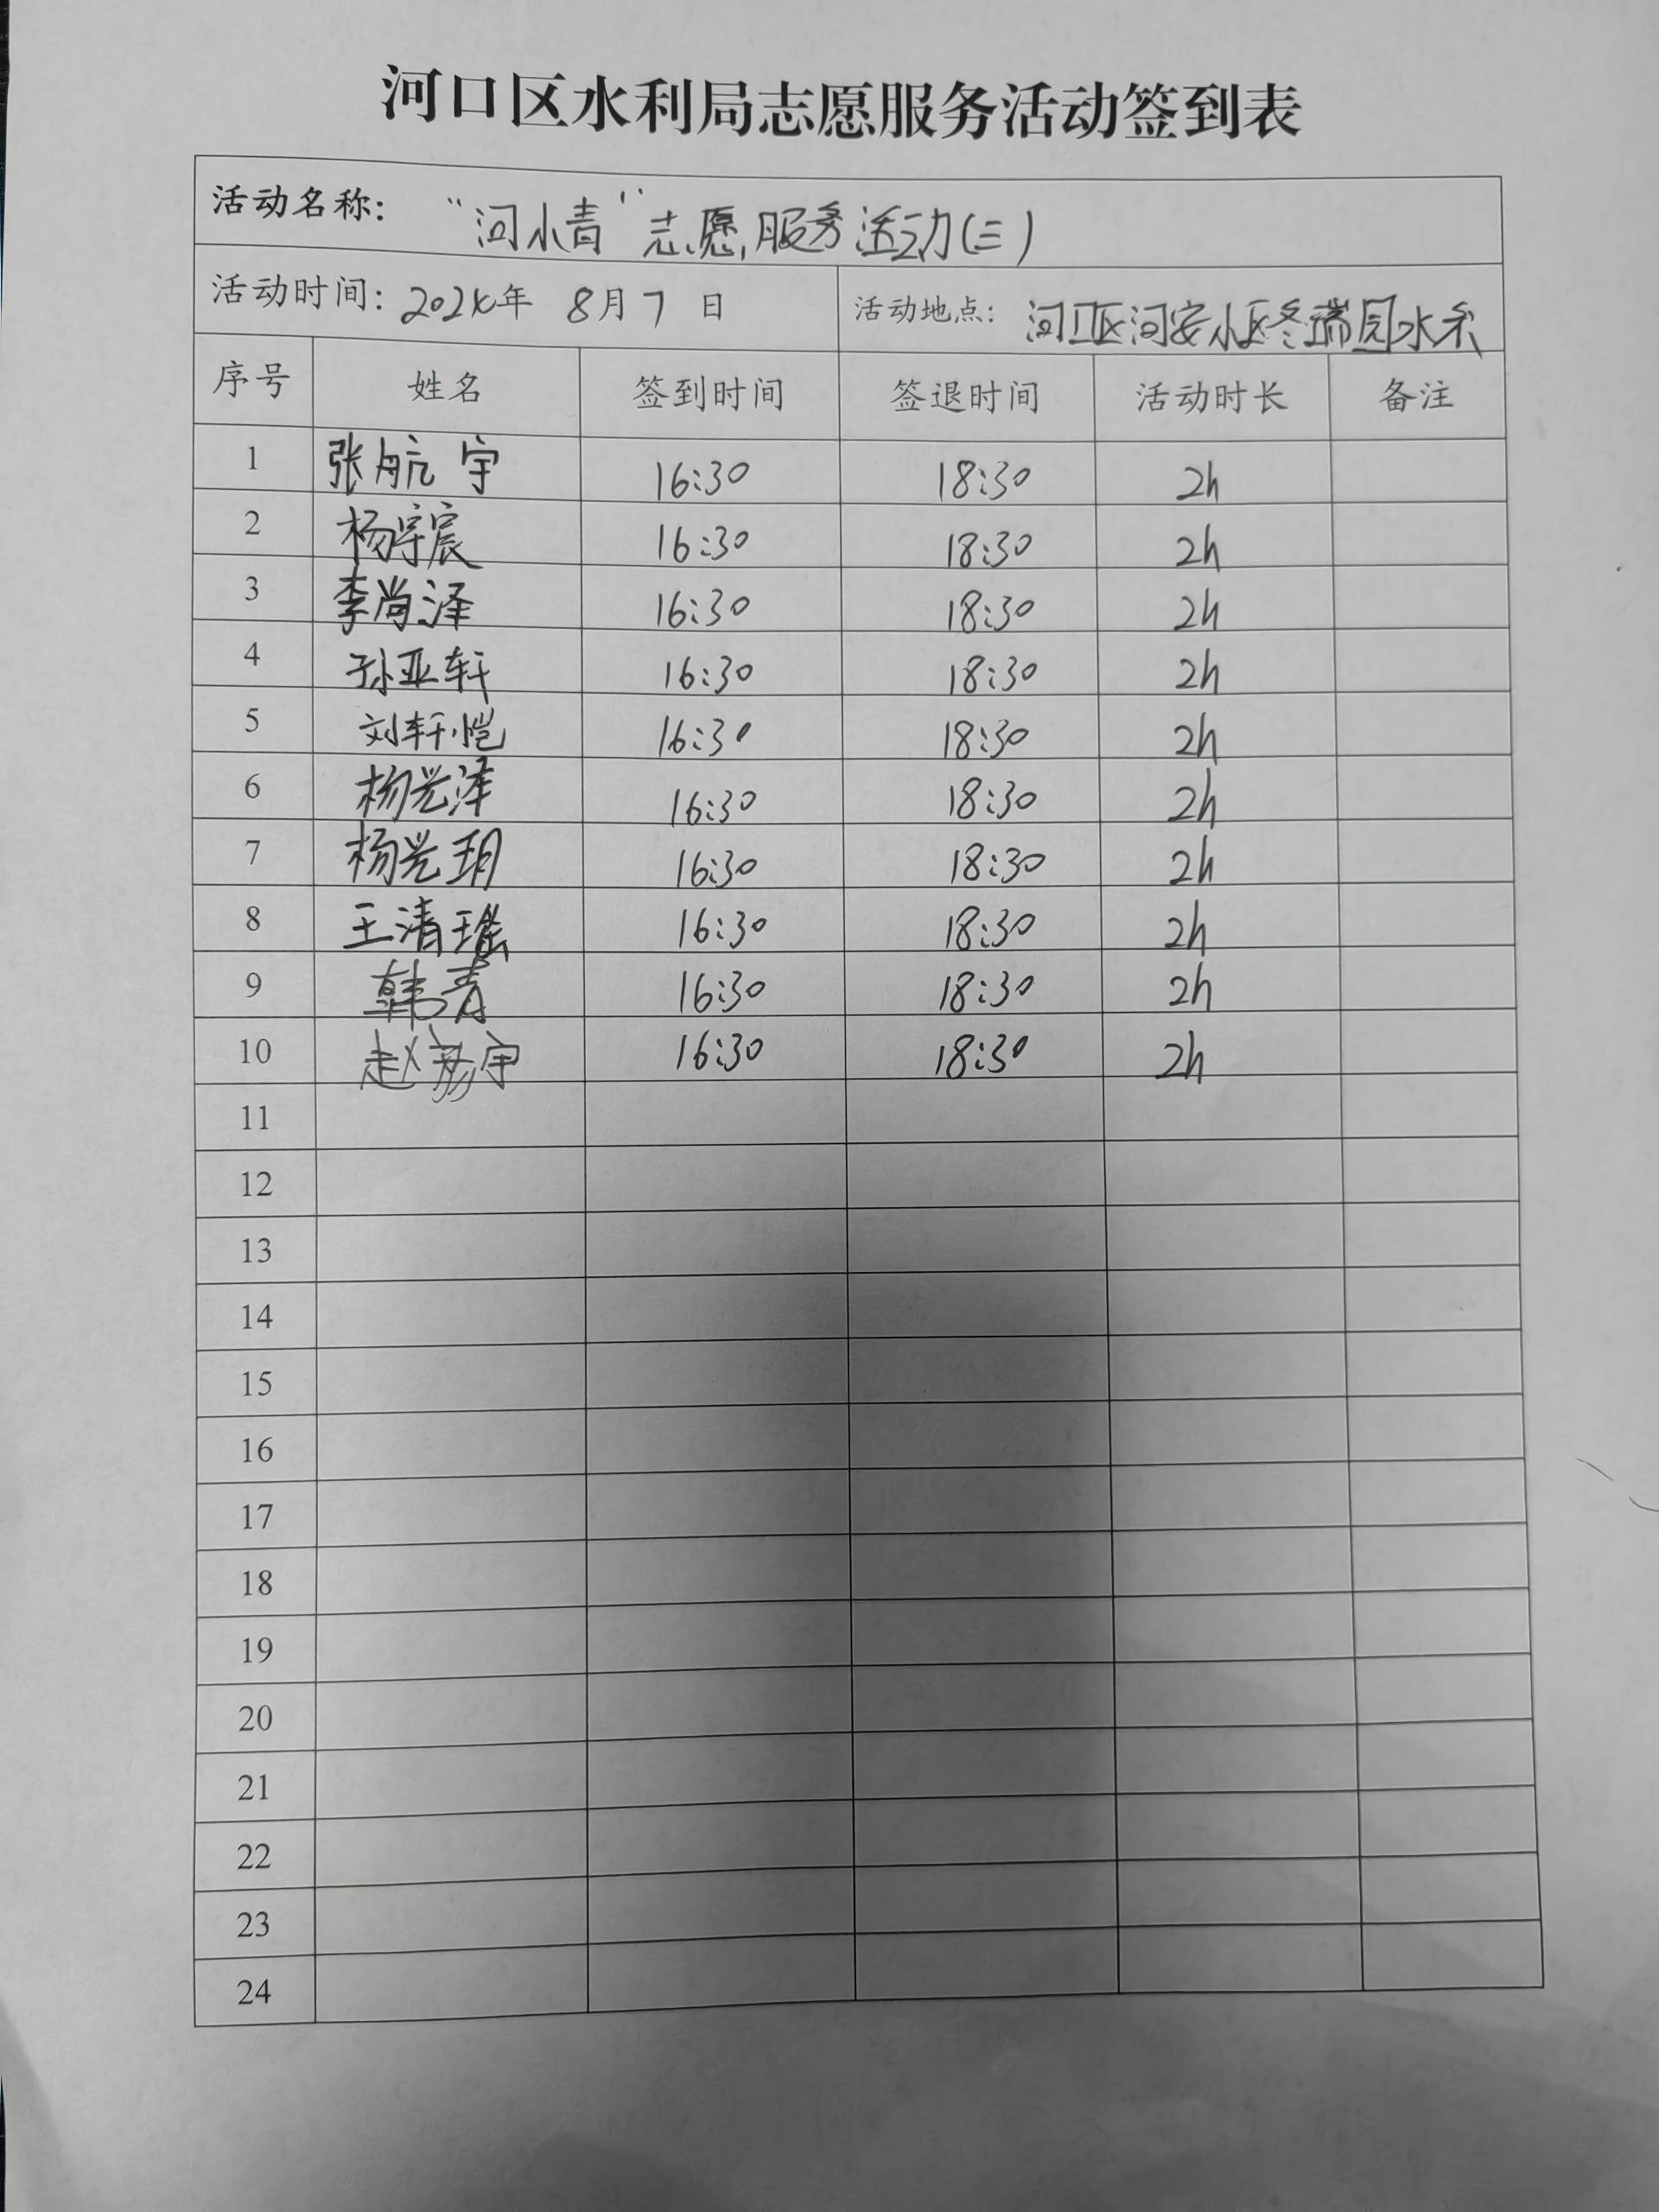 河口区水利局志愿服务活动签到表
活动名称: “河小青”志愿服务活动(三)
活动时间: 2024年 8月7日 活动地点: 河口区河安小区冬瑞园水系
序号 姓名 签到时间 签退时间 活动时长 备注
1 张航宇 16:30 18:30 2h
2 杨宇宸 16:30 18:30 2h
3 李尚泽 16:30 18:30 2h
4 孙亚轩 16:30 18:30 2h
5 刘轩恺 16:30 18:30 2h
6 杨光泽 16:30 18:30 2h
7 杨光玥 16:30 18:30 2h
8 王清瑶 16:30 18:30 2h
9 韩青 16:30 18:30 2h
10 赵彦宇 16:30 18:30 2h
11
12
13
14
15
16
17
18
19
20
21
22
23
24